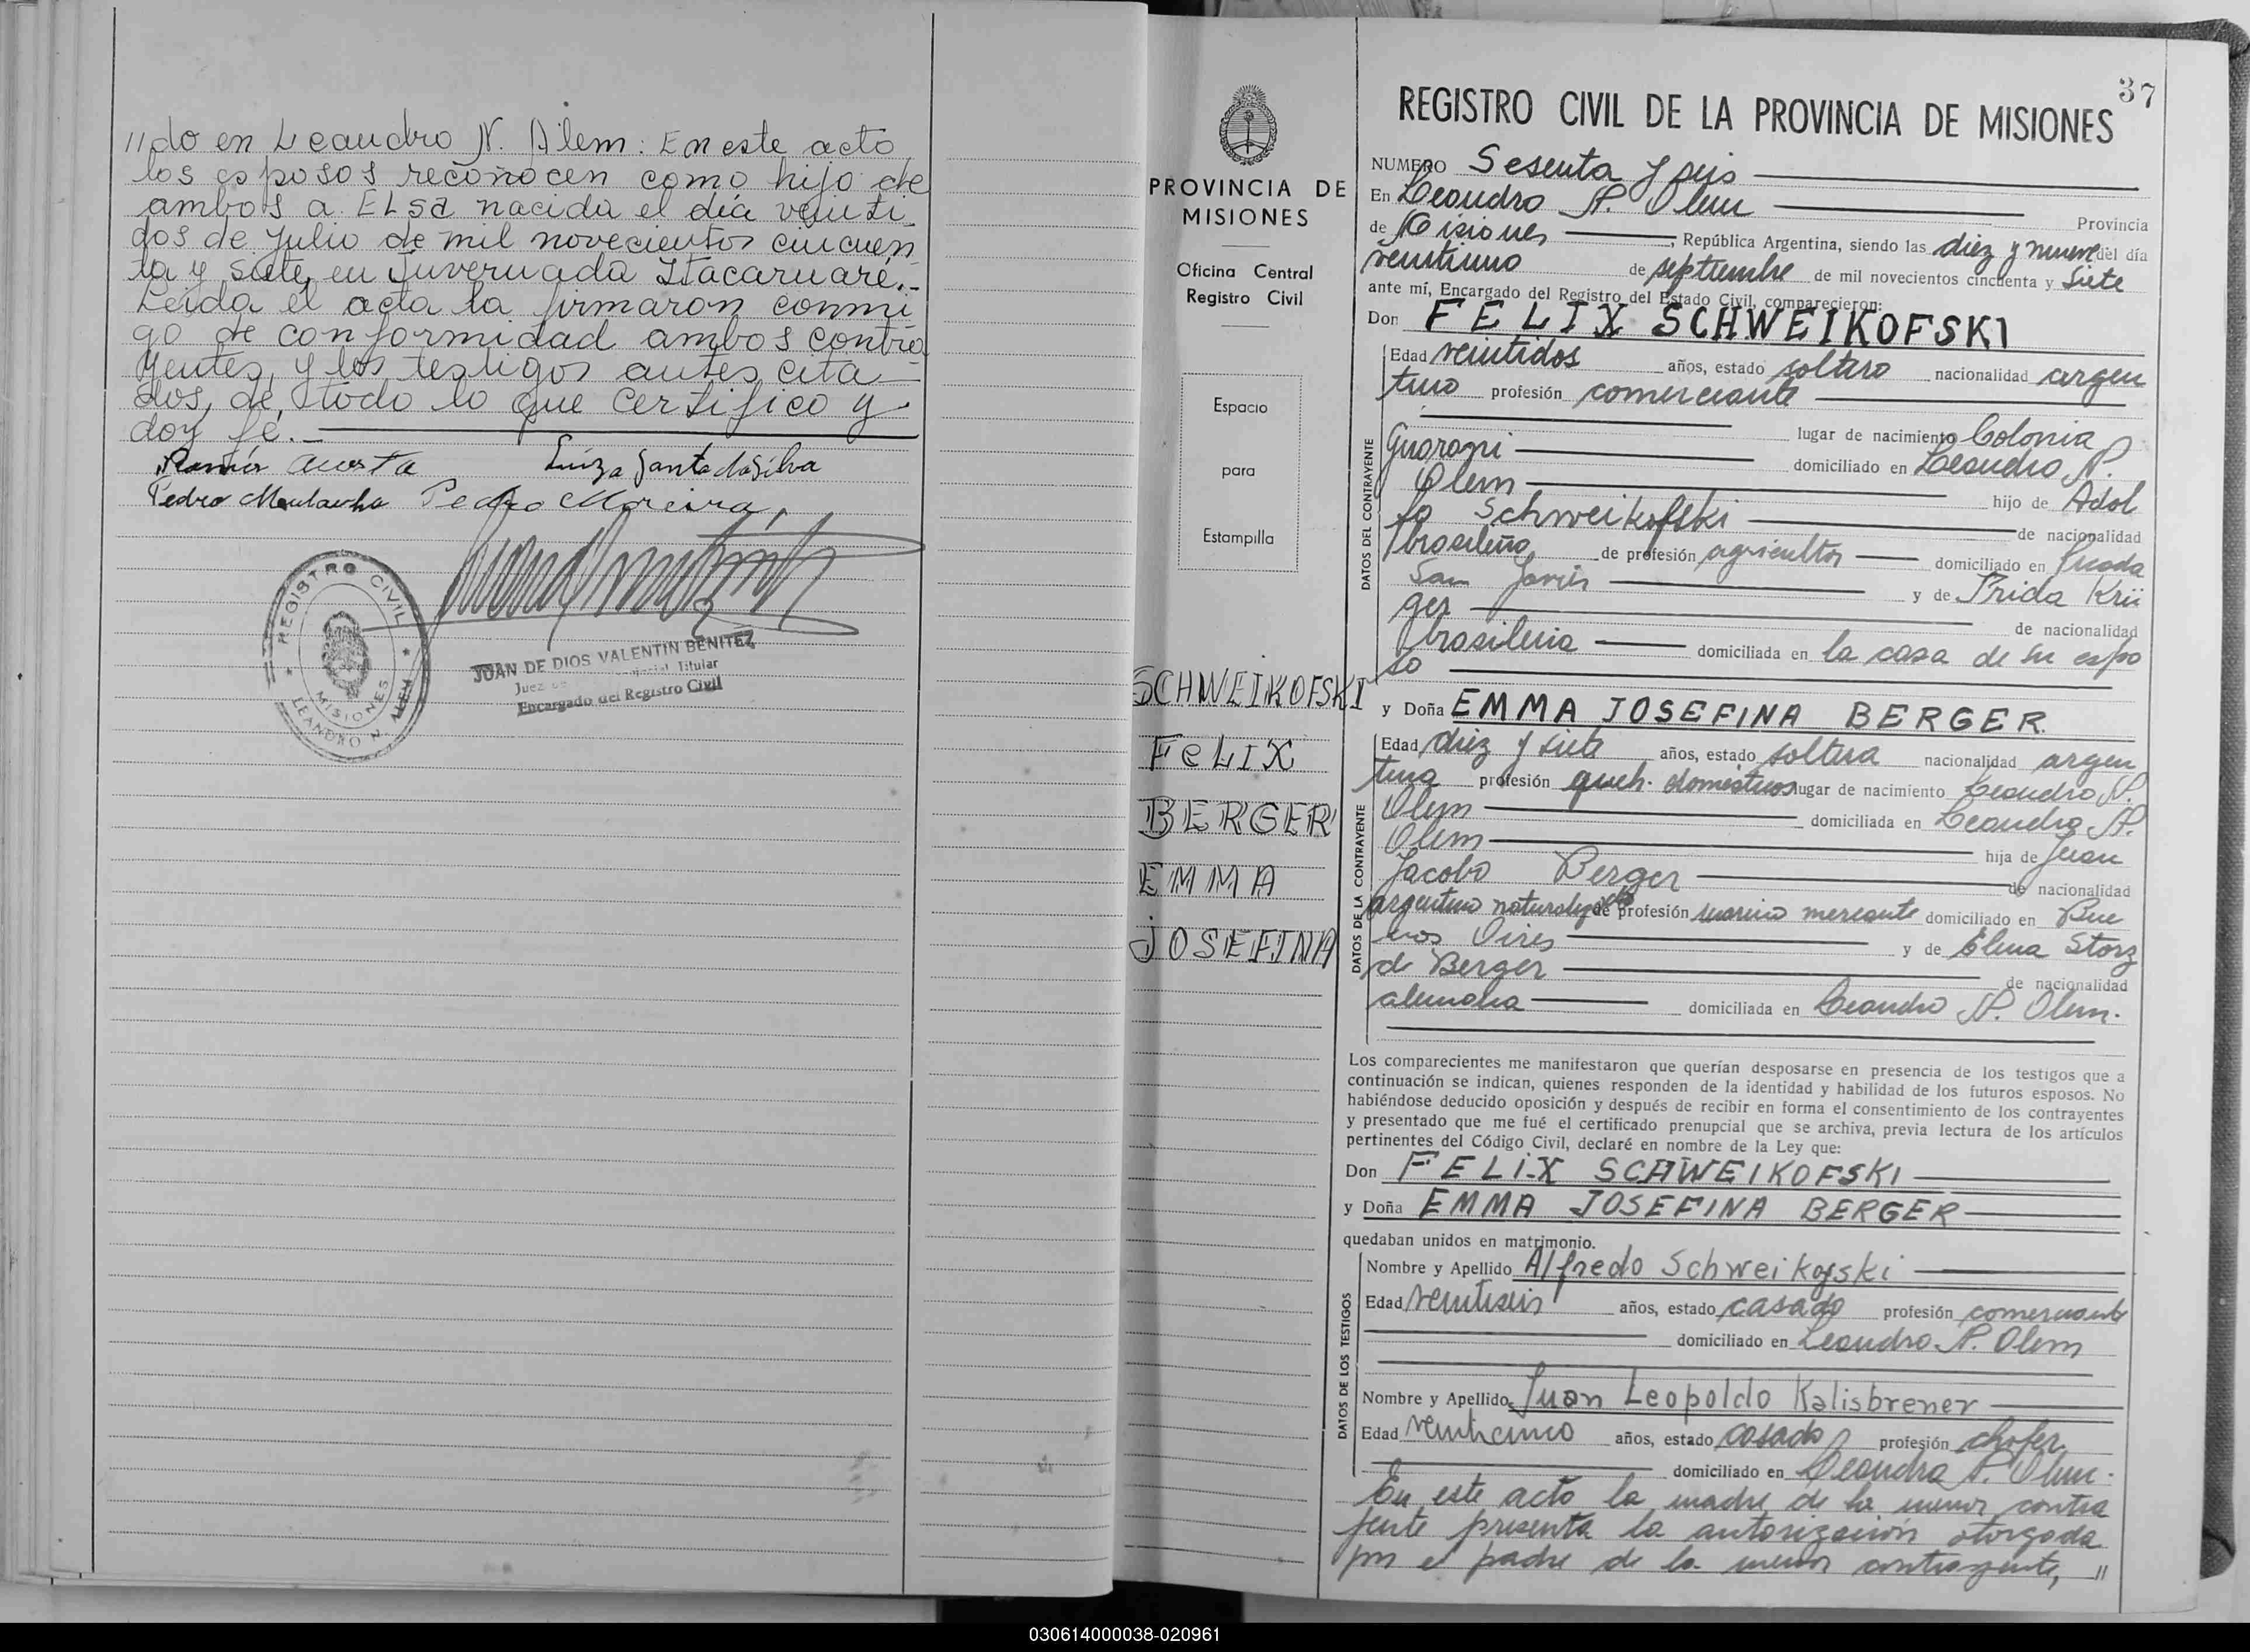 //do en Leandro N. Alem: En este acto
los esposos reconocen como hijo de
ambos a ELSA nacida el día veinti
dos de Julio de mil novecientos cincuen
ta y siete, en Invernada Itacaruaré.-
Leida el acta la firmaron conmi
go de conformidad ambos contra
yentes, y los testigos antes cita
dos, de todo lo que certifico y
doy fe.-
Ramón Acosta Luiza Santa da Silva
Pedro Pedro Moreira
REGISTRO CIVIL
MISIONES
LEANDRO N. ALEM
JUAN DE DIOS VALENTIN BENITEZ
Juez Titular
Encargado del Registro Civil
PROVINCIA DE
MISIONES
Oficina Central
Registro Civil
Espacio
para
Estampilla
SCHWEIKOFSKI
FELIX
BERGER
EMMA
JOSEFINA
37
REGISTRO CIVIL DE LA PROVINCIA DE MISIONES
NUMERO Sesenta y seis
En Leandro N. Alem Provincia
de Misiones, República Argentina, siendo las diez y nueve del día
veintiuno de septiembre de mil novecientos cincuenta y siete
ante mí, Encargado del Registro del Estado Civil, comparecieron:
Don FELIX SCHWEIKOFSKI
DATOS DEL CONTRAYENTE
Edad veintidos años, estado soltero nacionalidad argen
tino profesión comerciante
lugar de nacimiento Colonia
Guarani domiciliado en Leandro N.
Alem hijo de Adol
fo Schweikofski de nacionalidad
brasileño de profesión agricultor domiciliado en Picada
San Javier y de Frida Krü
ger de nacionalidad
brasileña domiciliada en la casa de su espo
so
y Doña EMMA JOSEFINA BERGER
DATOS DE LA CONTRAYENTE
Edad diez y siete años, estado soltera nacionalidad argen
tina profesión queh. domésticos lugar de nacimiento Leandro N.
Alem domiciliada en Leandro N.
Alem hija de Juan
Jacobo Berger de nacionalidad
argentino naturalizado de profesión marino mercante domiciliado en Bue
nos Aires y de Elena Storz
de Berger de nacionalidad
alemana domiciliada en Leandro N. Alem.
Los comparecientes me manifestaron que querían desposarse en presencia de los testigos que a
continuación se indican, quienes responden de la identidad y habilidad de los futuros esposos. No
habiéndose deducido oposición y después de recibir en forma el consentimiento de los contrayentes
y presentado que me fué el certificado prenupcial que se archiva, previa lectura de los artículos
pertinentes del Código Civil, declaré en nombre de la Ley que:
Don FELIX SCHWEIKOFSKI
y Doña EMMA JOSEFINA BERGER
quedaban unidos en matrimonio.
DATOS DE LOS TESTIGOS
Nombre y Apellido Alfredo Schweikofski
Edad veintiseis años, estado casado profesión comerciante
domiciliado en Leandro N. Alem
Nombre y Apellido Juan Leopoldo Kalisbrener
Edad veinticinco años, estado casado profesión chofer
domiciliado en Leandro N. Alem.
En este acto la madre de la menor contra
yente presenta la autorización otorgada
por el padre de la menor contrayente, //
030614000038-020961